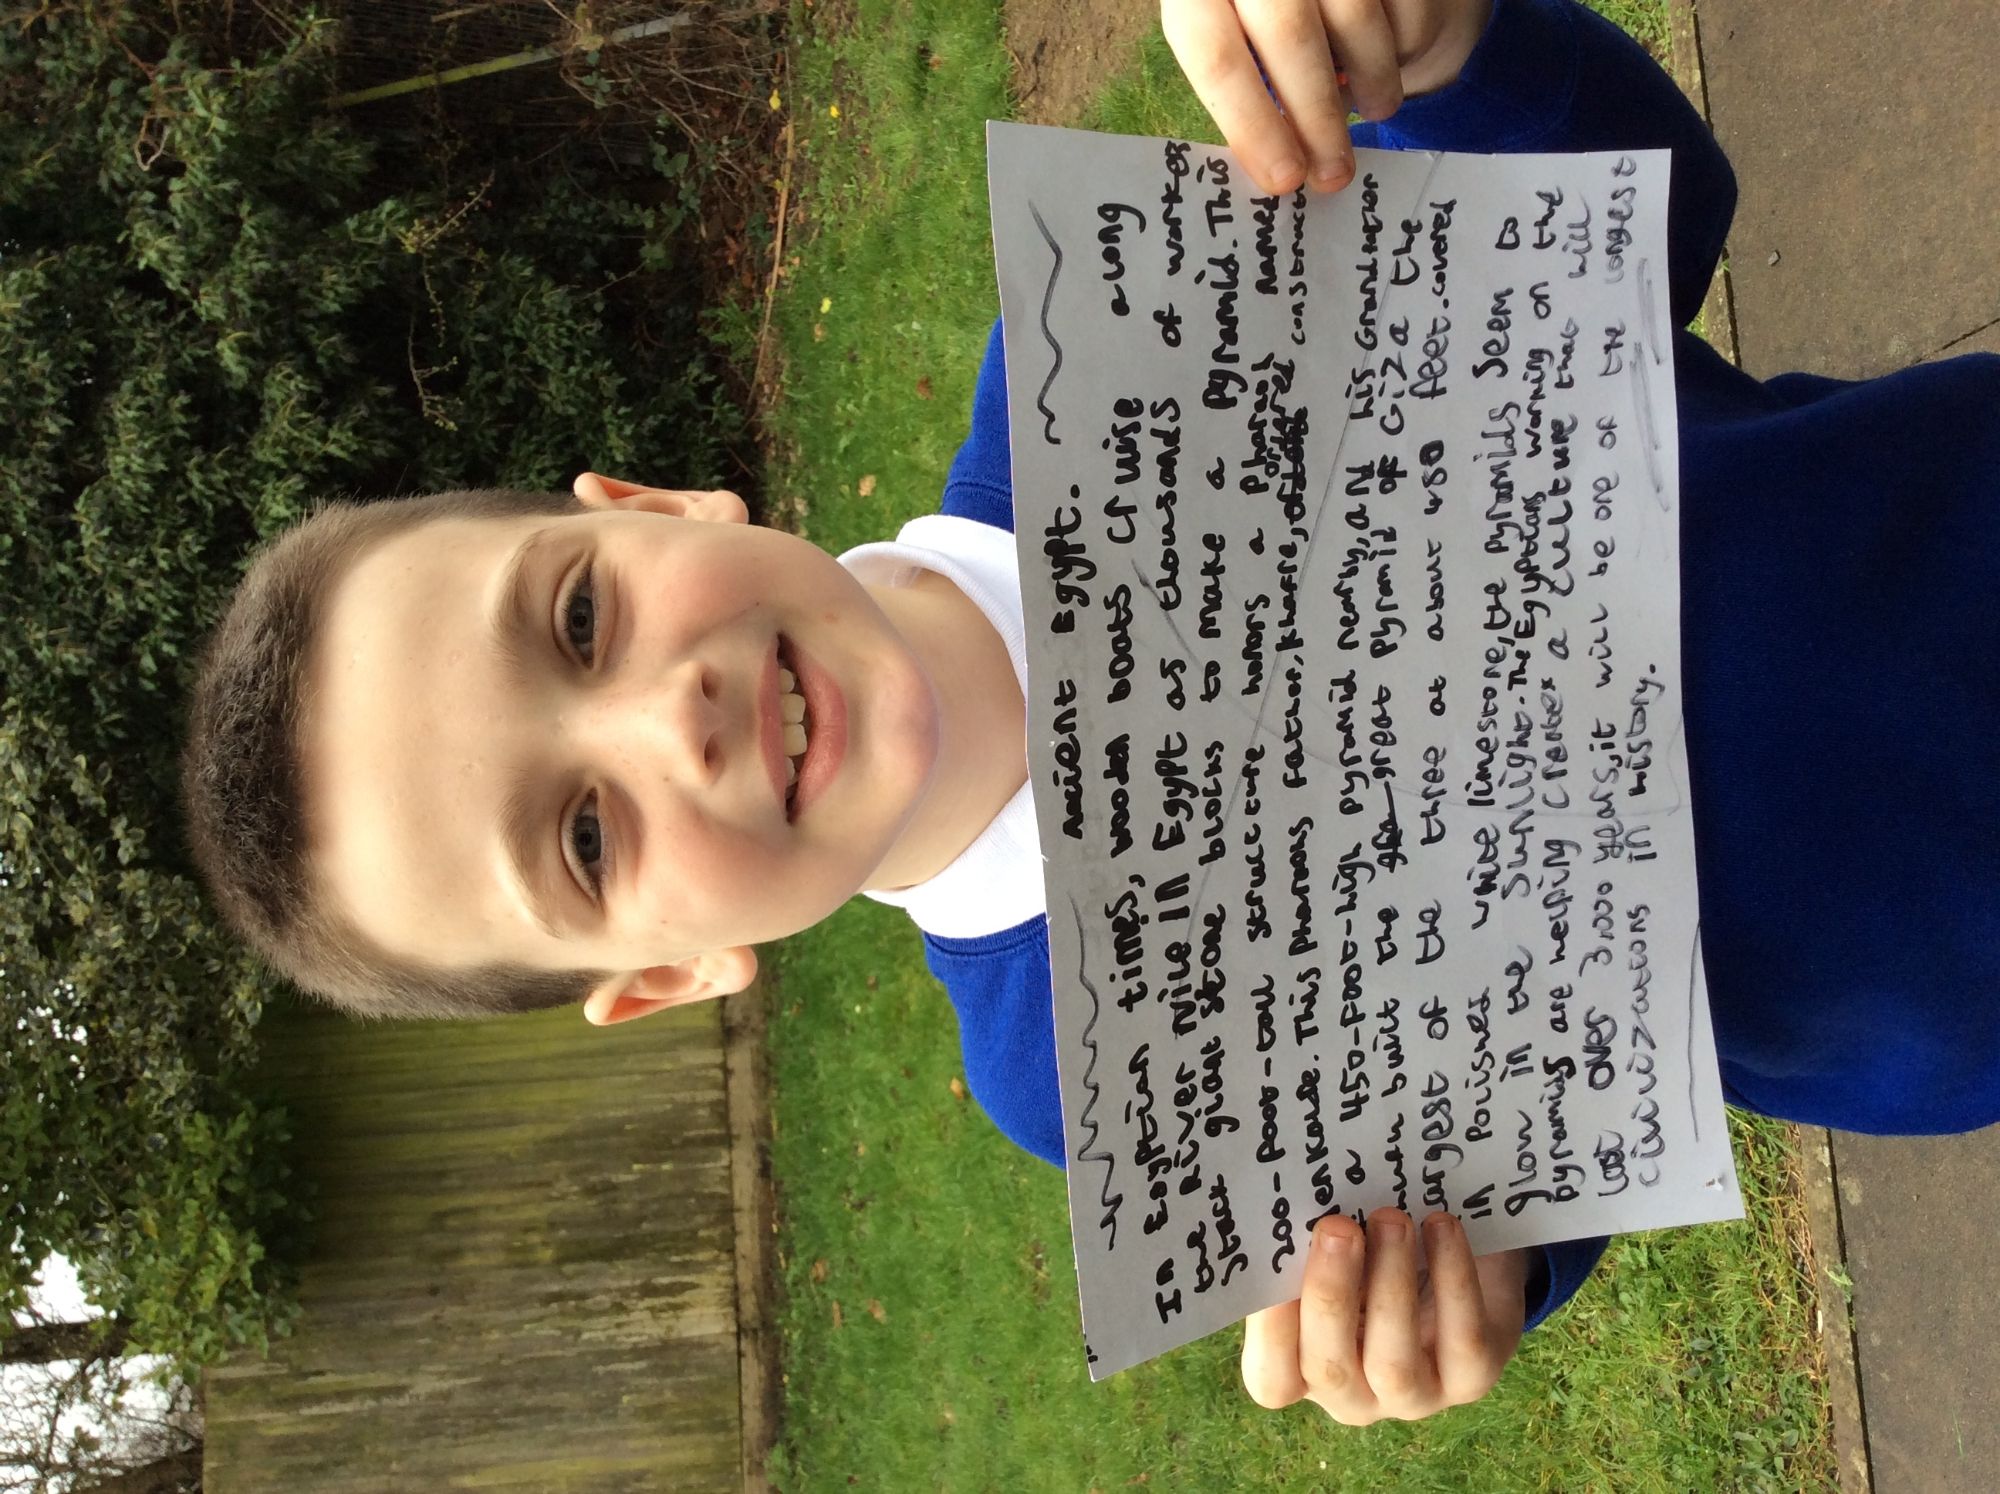 ancient Egypt.
In Egyptian times, wooden boats cruise along
the river Nile in Egypt as thousands of workers
stack giant stone blocks to make a pyramid. This
200-foot-tall structure honors a pharaoh named
Menkaure. This pharaohs father, khafre, ordered construct
a 450-foot-high pyramid nearby, and his Grandfather
built the great pyramid of Giza the
largest of the three at about 480 feet. covered
in polished white limestone, the pyramids seem to
glow in the sunlight. The Egyptians working on the
pyramids are helping create a culture that will
last over 3,000 years, it will be one of the longest
civilizations in history.